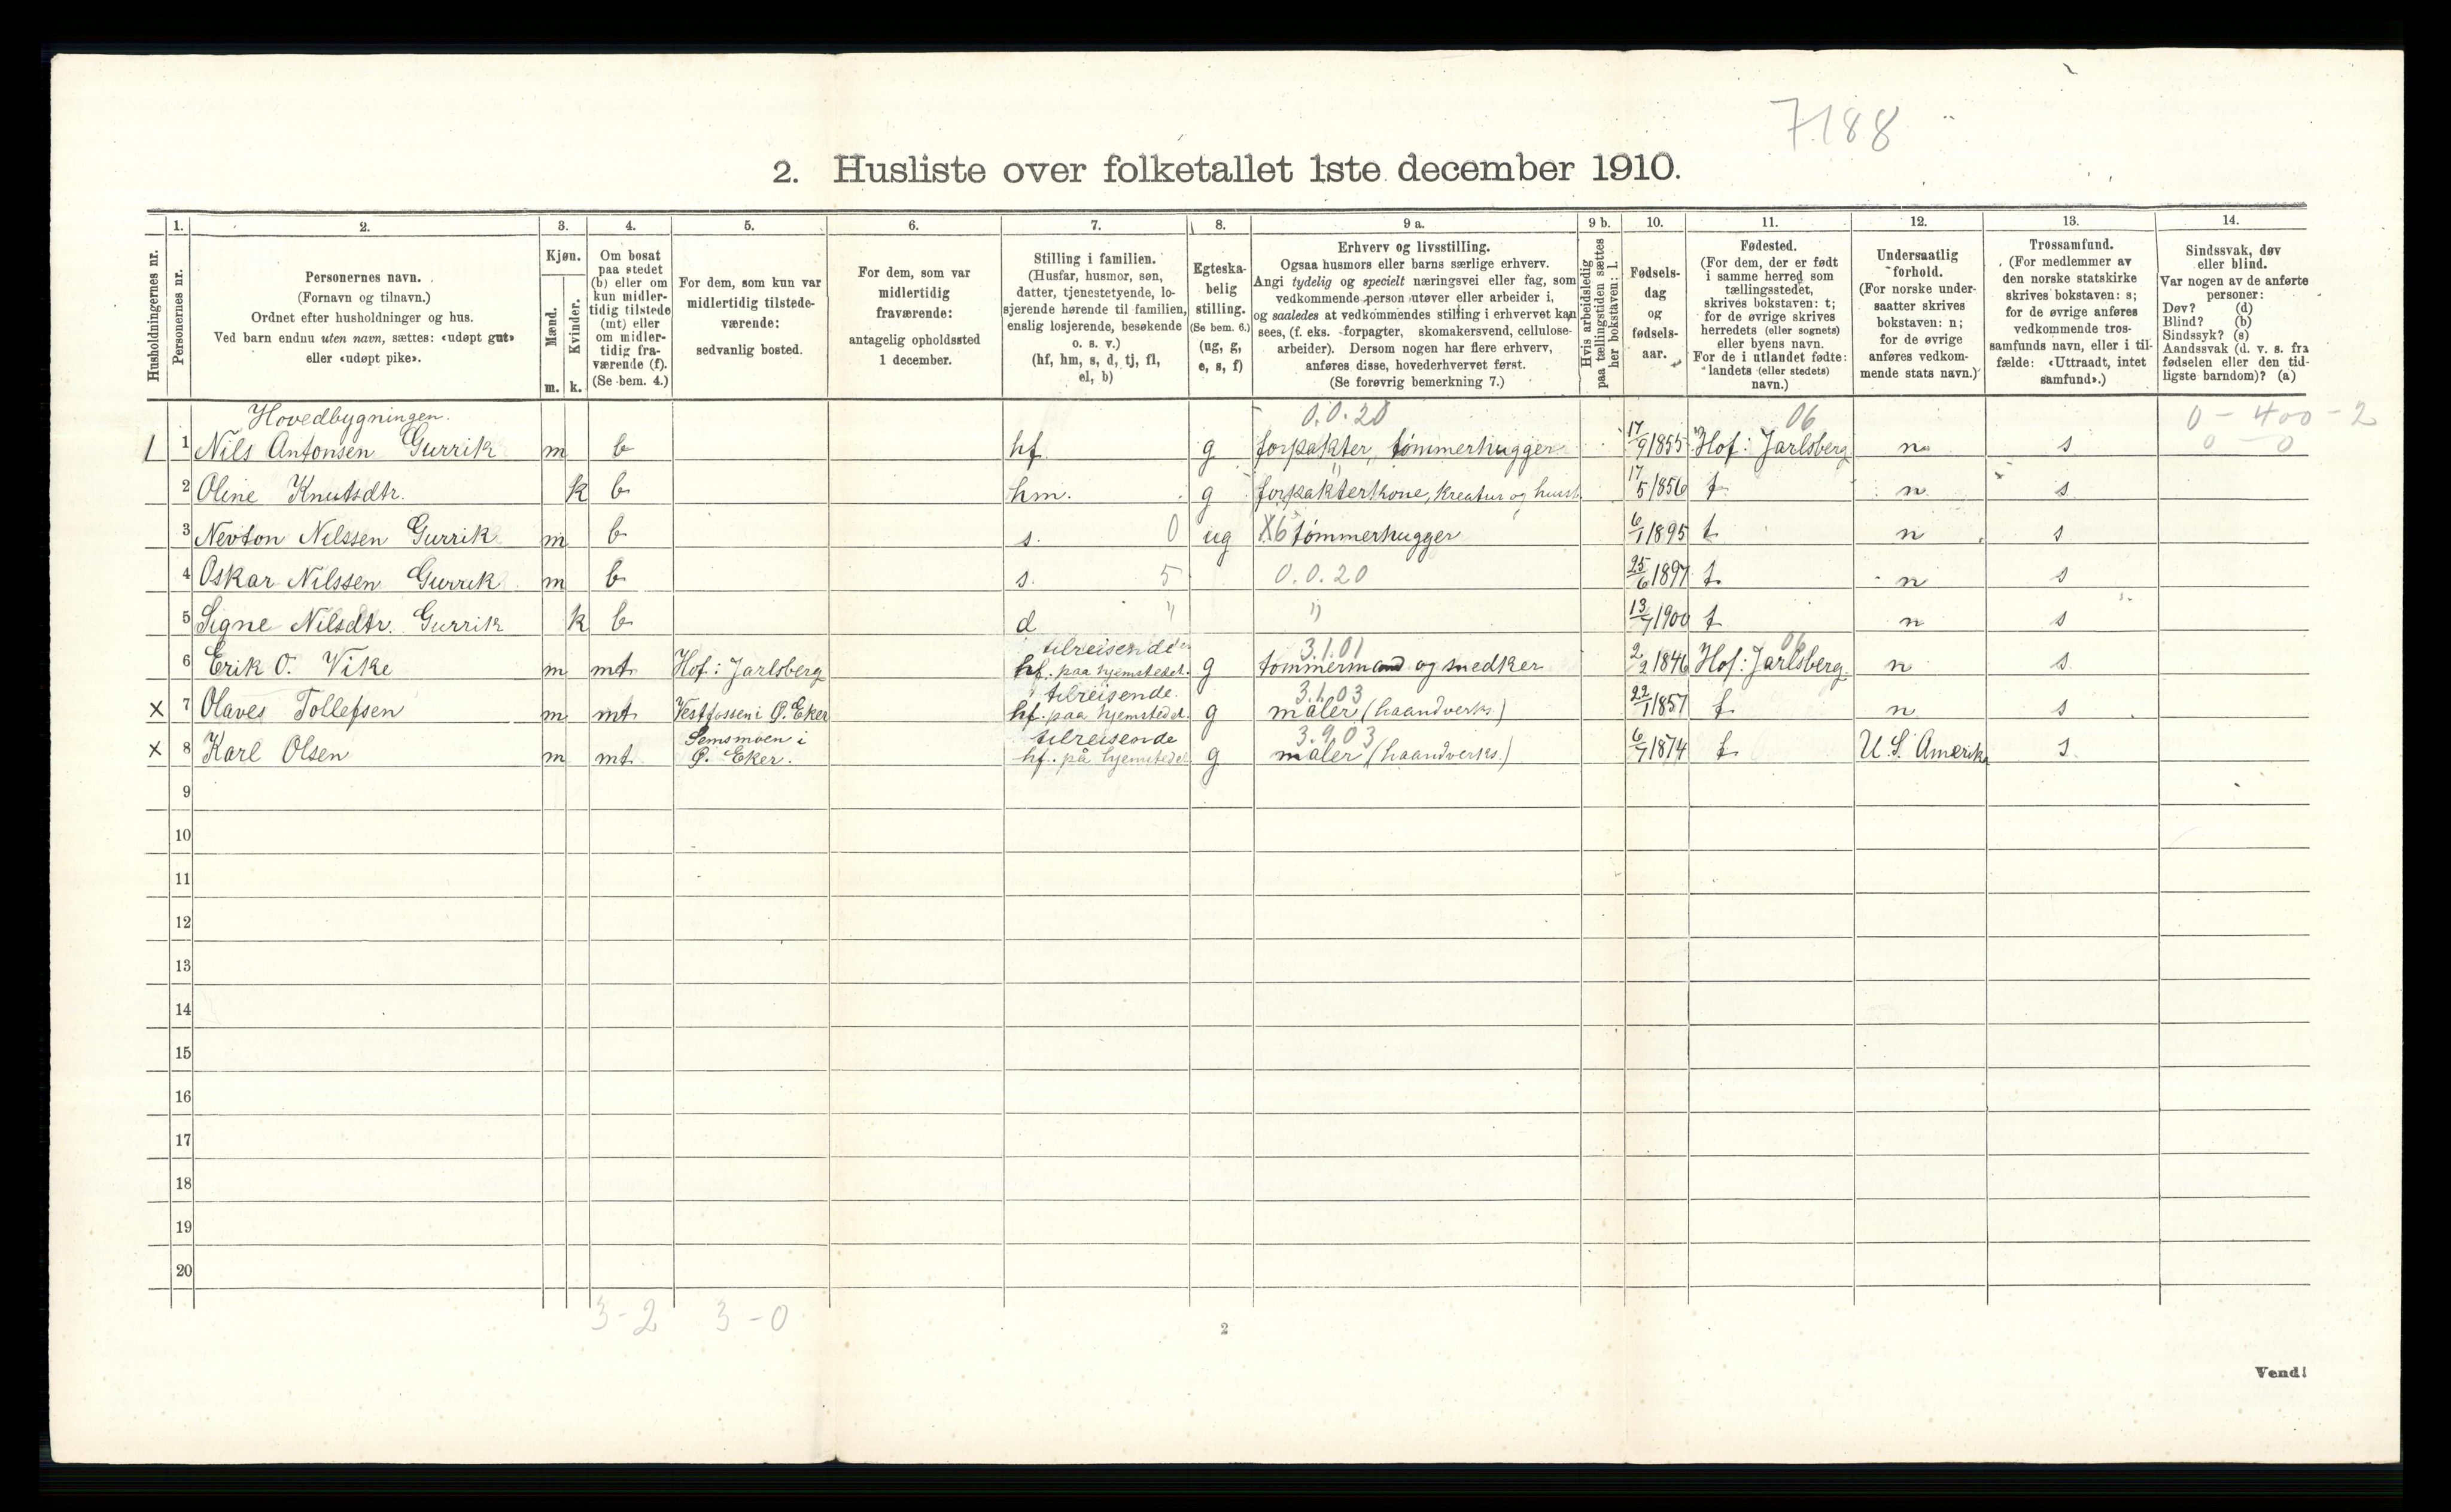 7188
2. Husliste over folketallet 1ste december 1910.
1. 2. 3. 4. 5. 6. 7. 8. 9 a. 9 b. 10. 11. 12. 13. 14.
Husholdningernes nr.
Personernes nr.
Personernes navn.
(Fornavn og tilnavn.)
Ordnet efter husholdninger og hus.
Ved barn endnu uten navn, sættes: «udøpt gut»
eller «udøpt pike».
Kjøn.
Mænd.
Kvinder.
m. k.
Om bosat
paa stedet
(b) eller om
kun midler-
tidig tilstede
(mt) eller
om midler-
tidig fra-
værende (f).
(Se bem. 4.)
For dem, som kun var
midlertidig tilstede-
værende:
sedvanlig bosted.
For dem, som var
midlertidig
fraværende:
antagelig opholdssted
1 december.
Stilling i familien.
(Husfar, husmor, søn,
datter, tjenestetyende, lo-
sjerende hørende til familien,
enslig losjerende, besøkende
o. s. v.)
(hf, hm, s, d, tj, fl,
el, b)
Egteska-
belig
stilling.
(Se bem. 6.)
(ug, g,
e, s, f)
Erhverv og livsstilling.
Ogsaa husmors eller barns særlige erhverv.
Angi tydelig og specielt næringsvei eller fag, som
vedkommende person utøver eller arbeider i,
og saaledes at vedkommendes stilling i erhvervet kan
sees, (f. eks. forpagter, skomakersvend, cellulose-
arbeider). Dersom nogen har flere erhverv,
anføres disse, hovederhvervet først.
(Se forøvrig bemerkning 7.)
Hvis arbeidsledig
paa tællingstiden sættes
her bokstaven: l.
Fødsels-
dag
og
fødsels-
aar.
Fødested.
(For dem, der er født
i samme herred som
tællingsstedet,
skrives bokstaven: t;
for de øvrige skrives
herredets (eller sognets)
eller byens navn.
For de i utlandet fødte:
landets (eller stedets)
navn.)
Undersaatlig
forhold.
(For norske under-
saatter skrives
bokstaven: n;
for de øvrige
anføres vedkom-
mende stats navn.)
Trossamfund.
(For medlemmer av
den norske statskirke
skrives bokstaven: s;
for de øvrige anføres
vedkommende tros-
samfunds navn, eller i til-
fælde: «Uttraadt, intet
samfund».)
Sindssvak, døv
eller blind.
Var nogen av de anførte
personer:
Døv? (d)
Blind? (b)
Sindssyk? (s)
Aandssvak (d. v. s. fra
fødselen eller den tid-
ligste barndom)? (a)
Hovedbygningen. 0.0.20 06 0 - 400 - 2
1 1 Nils Antonsen Gurrik m b hf. g forpakter, tømmerhugger 17/9 1855 Hof: Jarlsberg n s 0 - 0
2 Oline Knutsdtr. k b hm. g forpakterkone, kreatur og husst. 17/5 1856 t n s
3 Nevton Nilssen Gurrik m b s. 0 ug X6 tømmerhugger 6/1 1895 t n s
4 Oskar Nilssen Gurrik m b s. 5 0.0.20 25/6 1897 t. n s
5 Signe Nilsdtr. Gurrik k b d " " 13/7 1900 t n s
tilreisende 3.1.01 06
6 Erik O. Vike m mt Hof: Jarlsberg hf. paa hjemstedet. g tømmermand og snedker 2/2 1846 Hof: Jarlsberg. n s
tilreisende. 3.1.03
X 7 Olaves Tollefsen m mt Vestfossen i Ø. Eker hf. paa hjemstedet. g maler (haandverks.) 22/1 1857 t. n s
Semsmoen i tilreisende 3.9.03
X 8 Karl Olsen m mt. Ø. Eker. hf. på hjemstedet. g maler (haandverks.) 6/7 1874 t. U.S. Amerika s.
9
10
11
12
13
14
15
16
17
18
19
20
3 - 2 3 - 0
2
Vend!